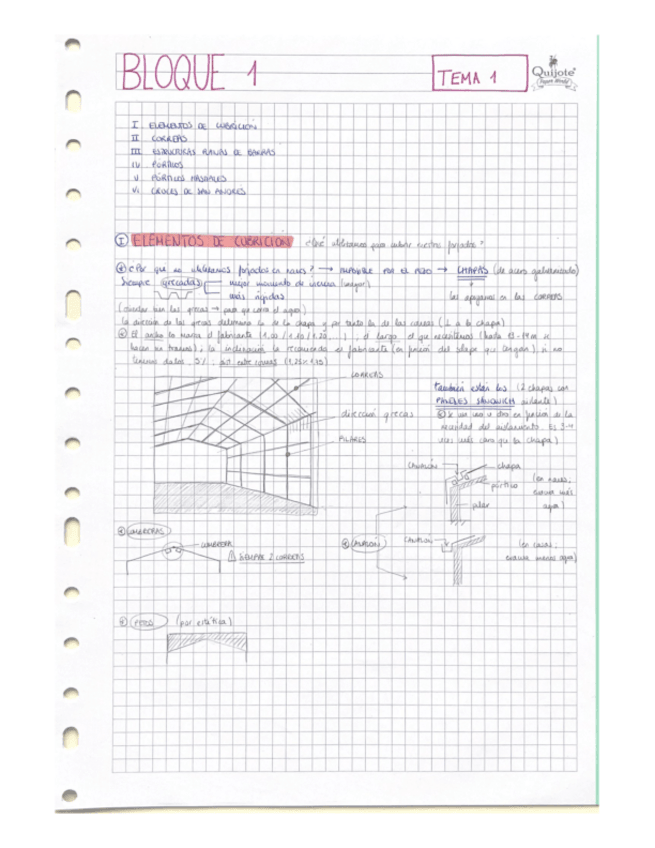 BLOQUE 1
TEMA 1
Quijote
I ELEMENTOS DE CUBRICIÓN
II CORREAS
III ESTRUCTURAS PLANAS DE BARRAS
IV PÓRTICOS
V PÓRTICOS HASTIALES
VI CRUCES DE SAN ANDRÉS
I ELEMENTOS DE CUBRICIÓN ¿Qué utilizamos para cubrir nuestros forjados?
¿Por qué no utilizamos forjados en naves? → IMPOSIBLE POR EL PESO → CHAPAS (de acero galvanizado)
Siempre grecadas mejor momento de inercia (mayor)
más rígidas
las apoyamos en las CORREAS
las grecas → para que corra el agua)
la dirección de las grecas determina la de la chapa y por tanto la de las correas (⊥ a la chapa)
El ancho lo marca el fabricante (1.00 / 1.10 / 1.20 ...), el largo el que necesitemos (hasta 13-14m se
hacen en tramos); la inclinación la recomienda el fabricante (en función del solape que tengan), si no
tenemos datos, 5%;
CORREAS
dirección grecas
PILARES
también están los (2 chapas con
PANELES SÁNDWICH aislante)
Se usa uno u otro en función de la
necesidad del aislamiento. Es 3-4
veces más caro que la chapa)
CANALÓN
chapa
pórtico
pilar
(en naves,
evacua más
agua)
CUMBRERAS
CUMBRERA
SIEMPRE 2 CORREAS
CANALÓN
CANALÓN
(en casas,
evacua menos agua)
PETO (por estética)